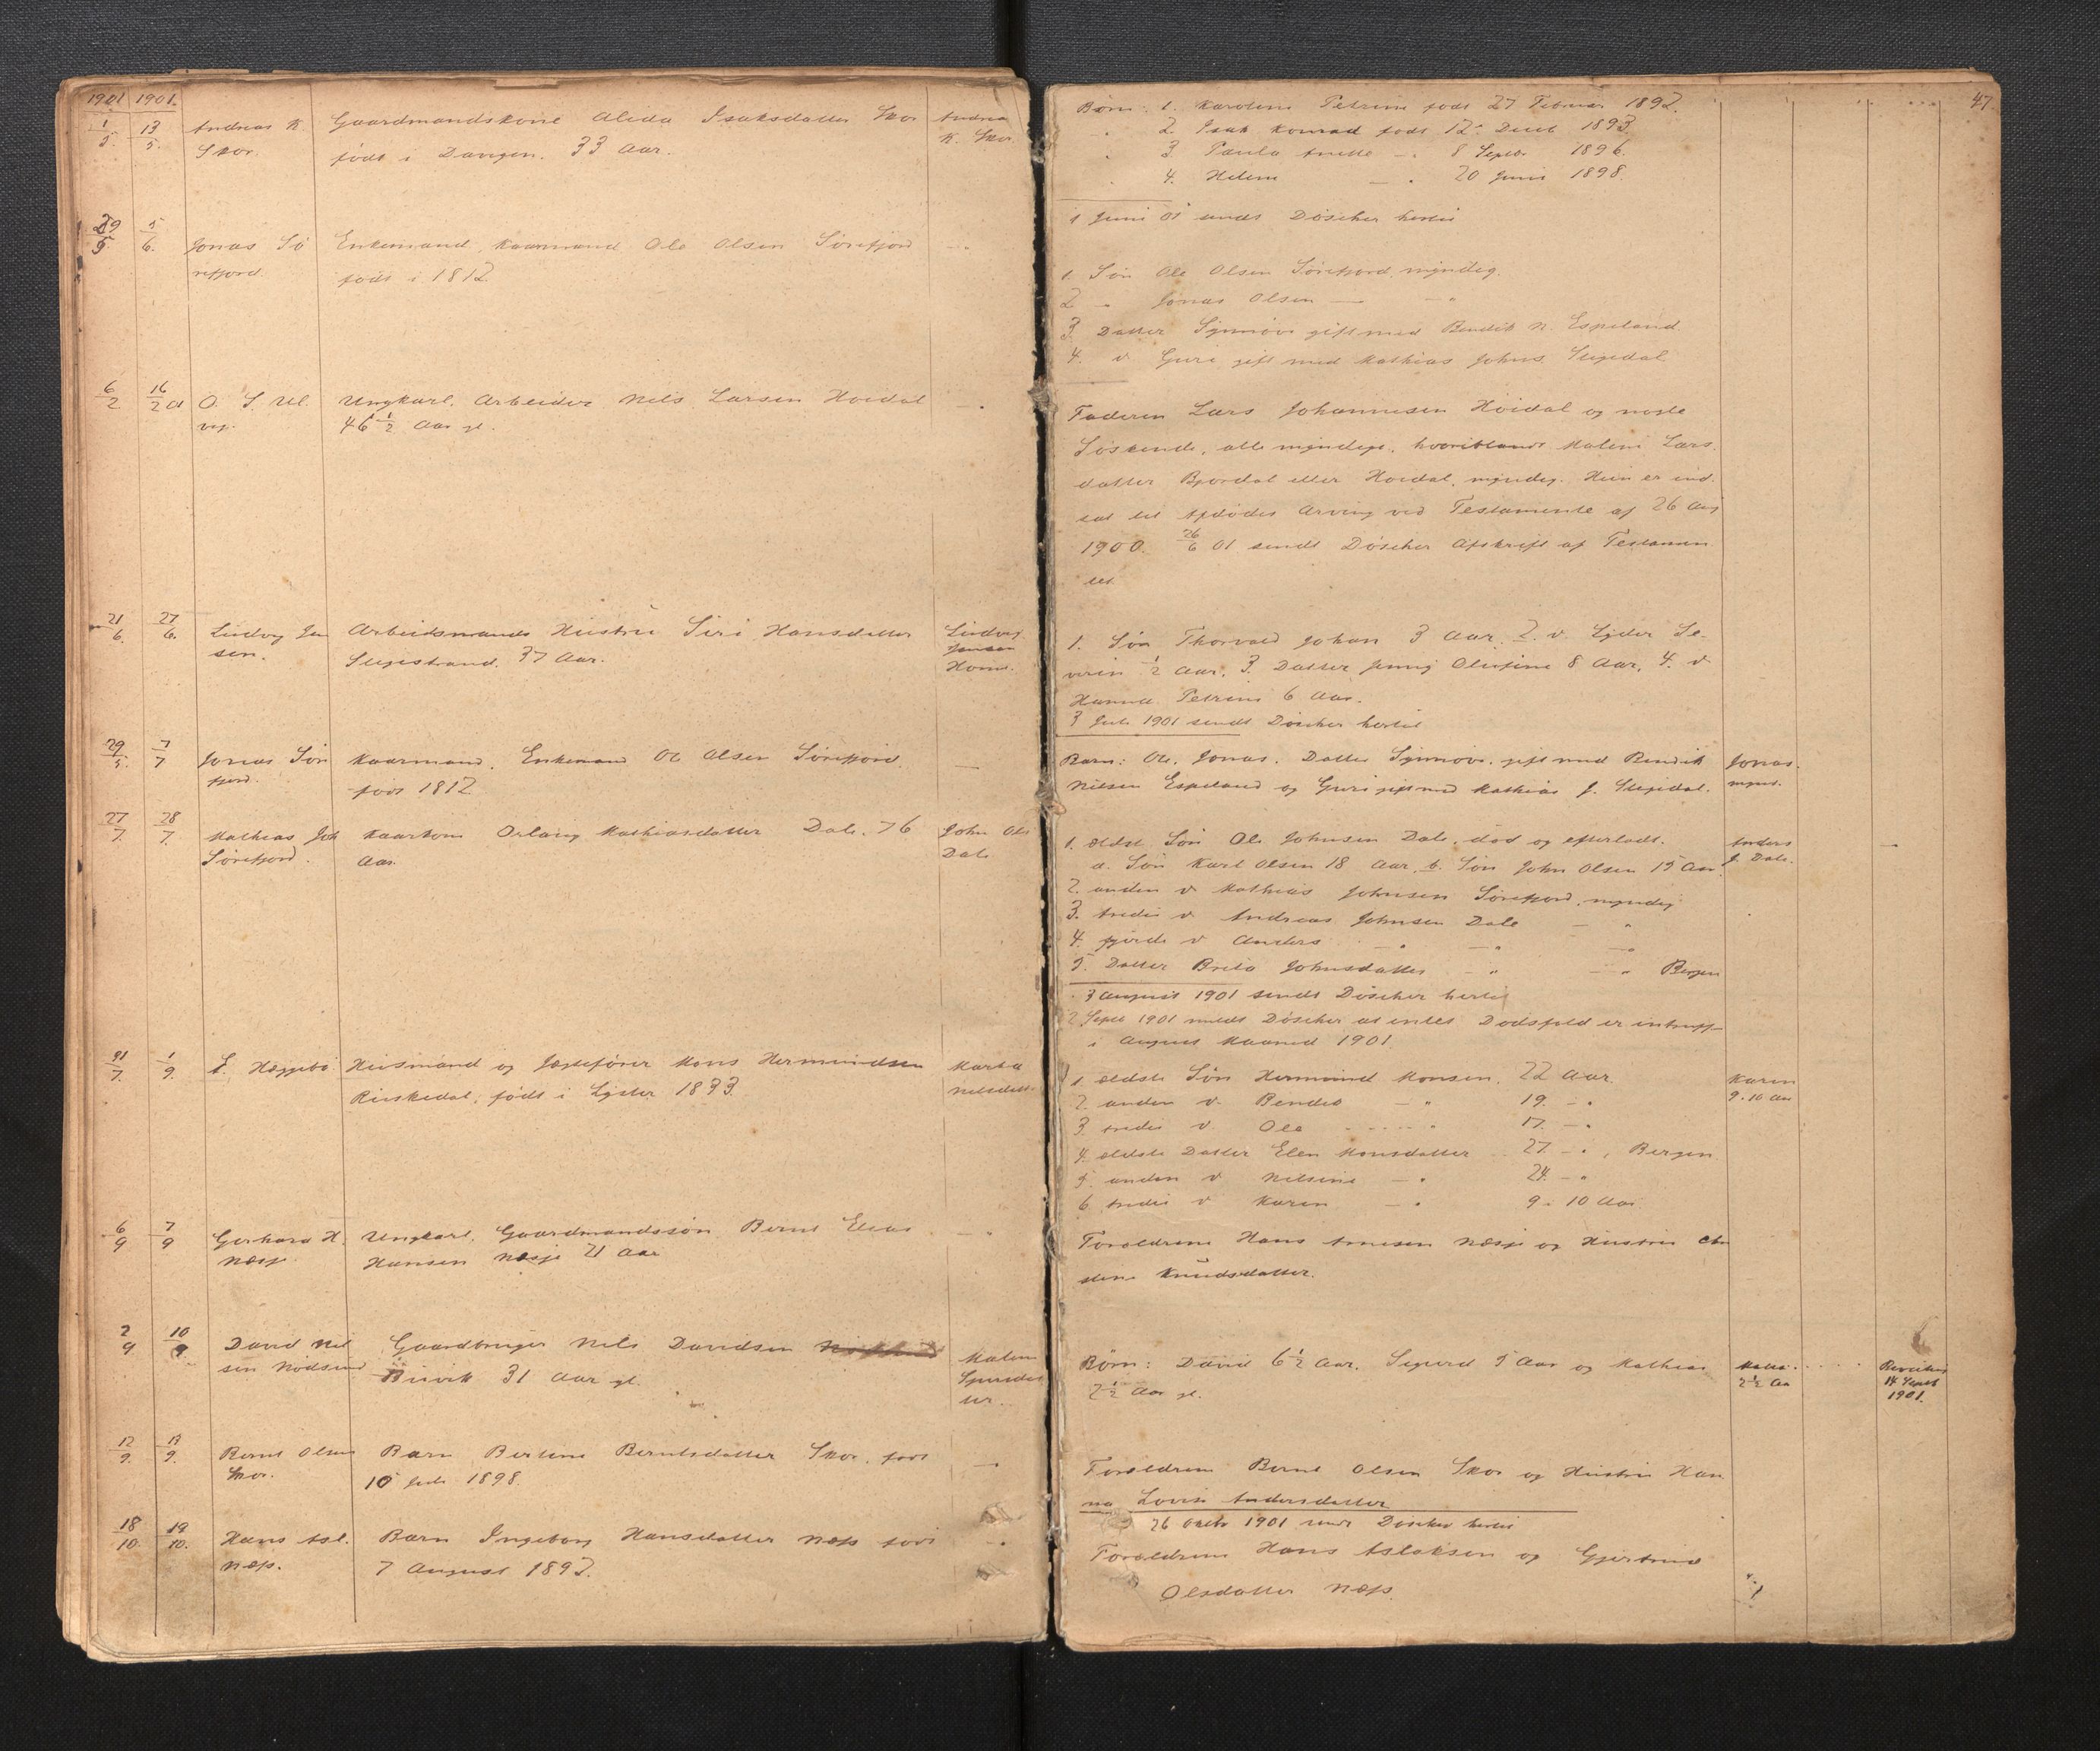 1901 1901.
1/5 13/5 Andreas K Gaardmandskone Alida Isaksdatter Skor Andrea
Skor. født i Davigen. 33 Aar. K. Skor.
29/5 5/6 Jonas Sö Enkemand, Kaarmand Ole Olsen Sörefjord
refjord. født i 1812
6/2 16/2 01 O. S. Ul. Ungkarl. Arbeider Nels Larsen Hoidal
veg. 46 1/2 Aar gl.
21/6 27/6 Ludvig Jen Arbeidsmands Hustru Siri Hansdatter Ludvig
sen. Stegestrand. 37 Aar. Jensen
Home.
29/5 7/7 Jonas Sör Kaarmand. Enkemand Ole Olsen Sörefjord
fjord. født 1812
27/7 28/7 Mathias Joh Kaarkone Orlaug Mathiasdatter Dale. 76 John Ols
Sörefjord. Aar. Dale
31/7 1/9 L. Hæggebö Husmand og Jægtefører Mons Hermundsen Marta
Riuskedal, født i Lyster 1833. Nelsdatt
6/9 7/9 Gerhard H. Ungkarl, Gaardmandssön Bernt Elias
Næsje Hansen Næsje 21 Aar
2/9 10/9 David Nel Gaardbruger Nels Davidsen
sen Nödsund Buvik 31 Aar gl. Malene
Sjursdat
ter.
12/9 13/9 Bernt Olsen Barn Bertine Berntsdatter Skor, født
Skor. 10 Juli 1898.
18/10 19/10 Hans Asl. Barn Ingeborg Hansdatter Næss født
Næss. 7 August 1892.
47
Børn: 1. Karoline Petrine født 27 Februar 1892.
2. Isak Konrad født 12 Decbr 1893.
3. Paula Anette 8 Septbr 1896.
4. Helene 20 Juni 1898.
1 Juni 01 sendt Döscher hertil
1. Sön Ole Olsen Sörefjord, myndig.
2 - Jonas Olsen — — "
3. Datter Synnöve gift med Bendik N. Espeland
4. d. Guri gift med Mathias Johns. Stegedal
Faderen Lars Johannesen Hoidal og nogle
Söskende, alle myndige, hvoriblandt Malene Lars
datter Bjordal eller Hoidal, myndig. Hun er ind
sat til Afdödes Arving ved Testamente af 26 Aug
1900. 26/6 01 sendt Döscher Afskrift af Testamen
tet
1. Sön Thorvald Johan 3 Aar, 2. d. Lyder Se
verin 1/2 Aar, 3. Datter Jenny Olufine 8 Aar, 4. d
Hanna Petrine 6 Aar.
3 Juli 1901 sendt Döscher hertil
Barn: Ole, Jonas. Datter Synnöve, gift med Bendik Jonas.
Nilsen Espeland og Guri gift med Mathias J. Stegedal. mynd.
1. ældst. Sön Ole Johnsen Dale, död og efterladt. Anders
a. Sön Karl Olsen 18 Aar, b. Sön John Olsen 15 Aar. J. Dale.
2. anden d Mathias Johnsen Sörefjord, myndig
3. tredie d Andreas Johnsen Dale — "
4. fjerde d Anders — " — " — "
5. Datter Brita Johnsdatter — " — " Bergen
3 August 1901 sendt Döscher hertil
2 Septb 1901 meldt Döscher at intet Dödsfald er intruff
i August Maaned 1901
1. ældste Sön Hermund Monsen, 22 Aar. Karen
2. anden d. Bendik — " 19. — " 9-10 Aar
3. tredie d. Ole " 17. — "
4. ældste Datter Elen Monsdatter 27 — ", Bergen
5. anden d Nelsine — " 24. — "
6. tredie d Karen — " 9-10 Aar
Foræeldrene Hans Arnesen Næsje og Hustru Chri
stine Knudsdatter.
Børn: David 6 1/2 Aar. Sigurd 5 Aar og Mathias Mathi.
2 1/2 Aar gl. 2 1/2 Aa
14 Septb
1901.
Forældrene Bernt Olsen Skor og Hustru Han
na Lovise Andersdatter
26 Octbr 1901 sendt Döscher hertil
Forældrene Hans Aslaksen og Gjertrud
Olsdatter Næss.